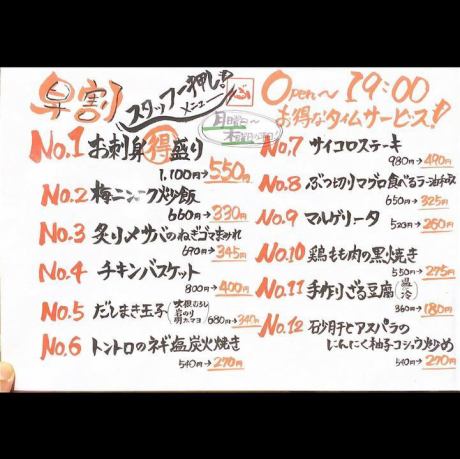 早割
スタッフ一押し!!
メニュー
Open〜19:00
お得なタイムサービス!!
月曜日〜
No.1 お刺身得盛り
1,100円→550円
No.2 梅ニンニク炒飯
660円→330円
No.3 炙りメサバのねぎゴマまみれ
690円→345円
No.4 チキンバスケット
800円→400円
No.5 だしまき玉子
大根おろし
岩のり
明太マヨ
680円→340円
No.6 トントロのネギ塩炭火焼き
540円→270円
No.7 サイコロステーキ
980円→490円
No.8 ぶつ切りマグロの食べるラー油和え
650円→325円
No.9 マルゲリータ
520円→260円
No.10 鶏もも肉の黒焼き
550円→275円
No.11 手作りざる豆腐
温
冷
360円→180円
No.12 砂肝とアスパラの
にんにく柚子コショウ炒め
540円→270円